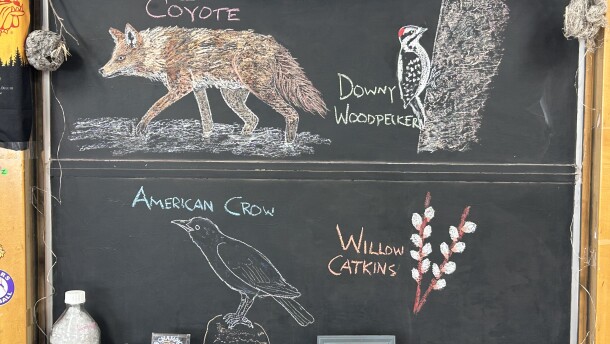 COYOTE
DOWNY
WOODPECKER
AMERICAN CROW
WILLOW
CATKINS